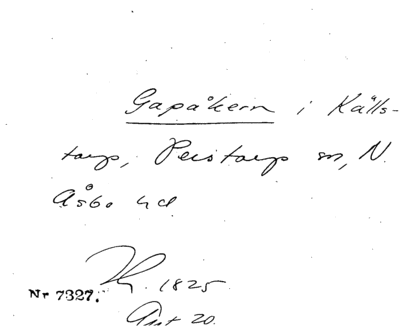 Gapåkern i Källs-
torp, Perstorps sn, N.
Åsbo hd
1825
Nr 7327.
Akt 20.